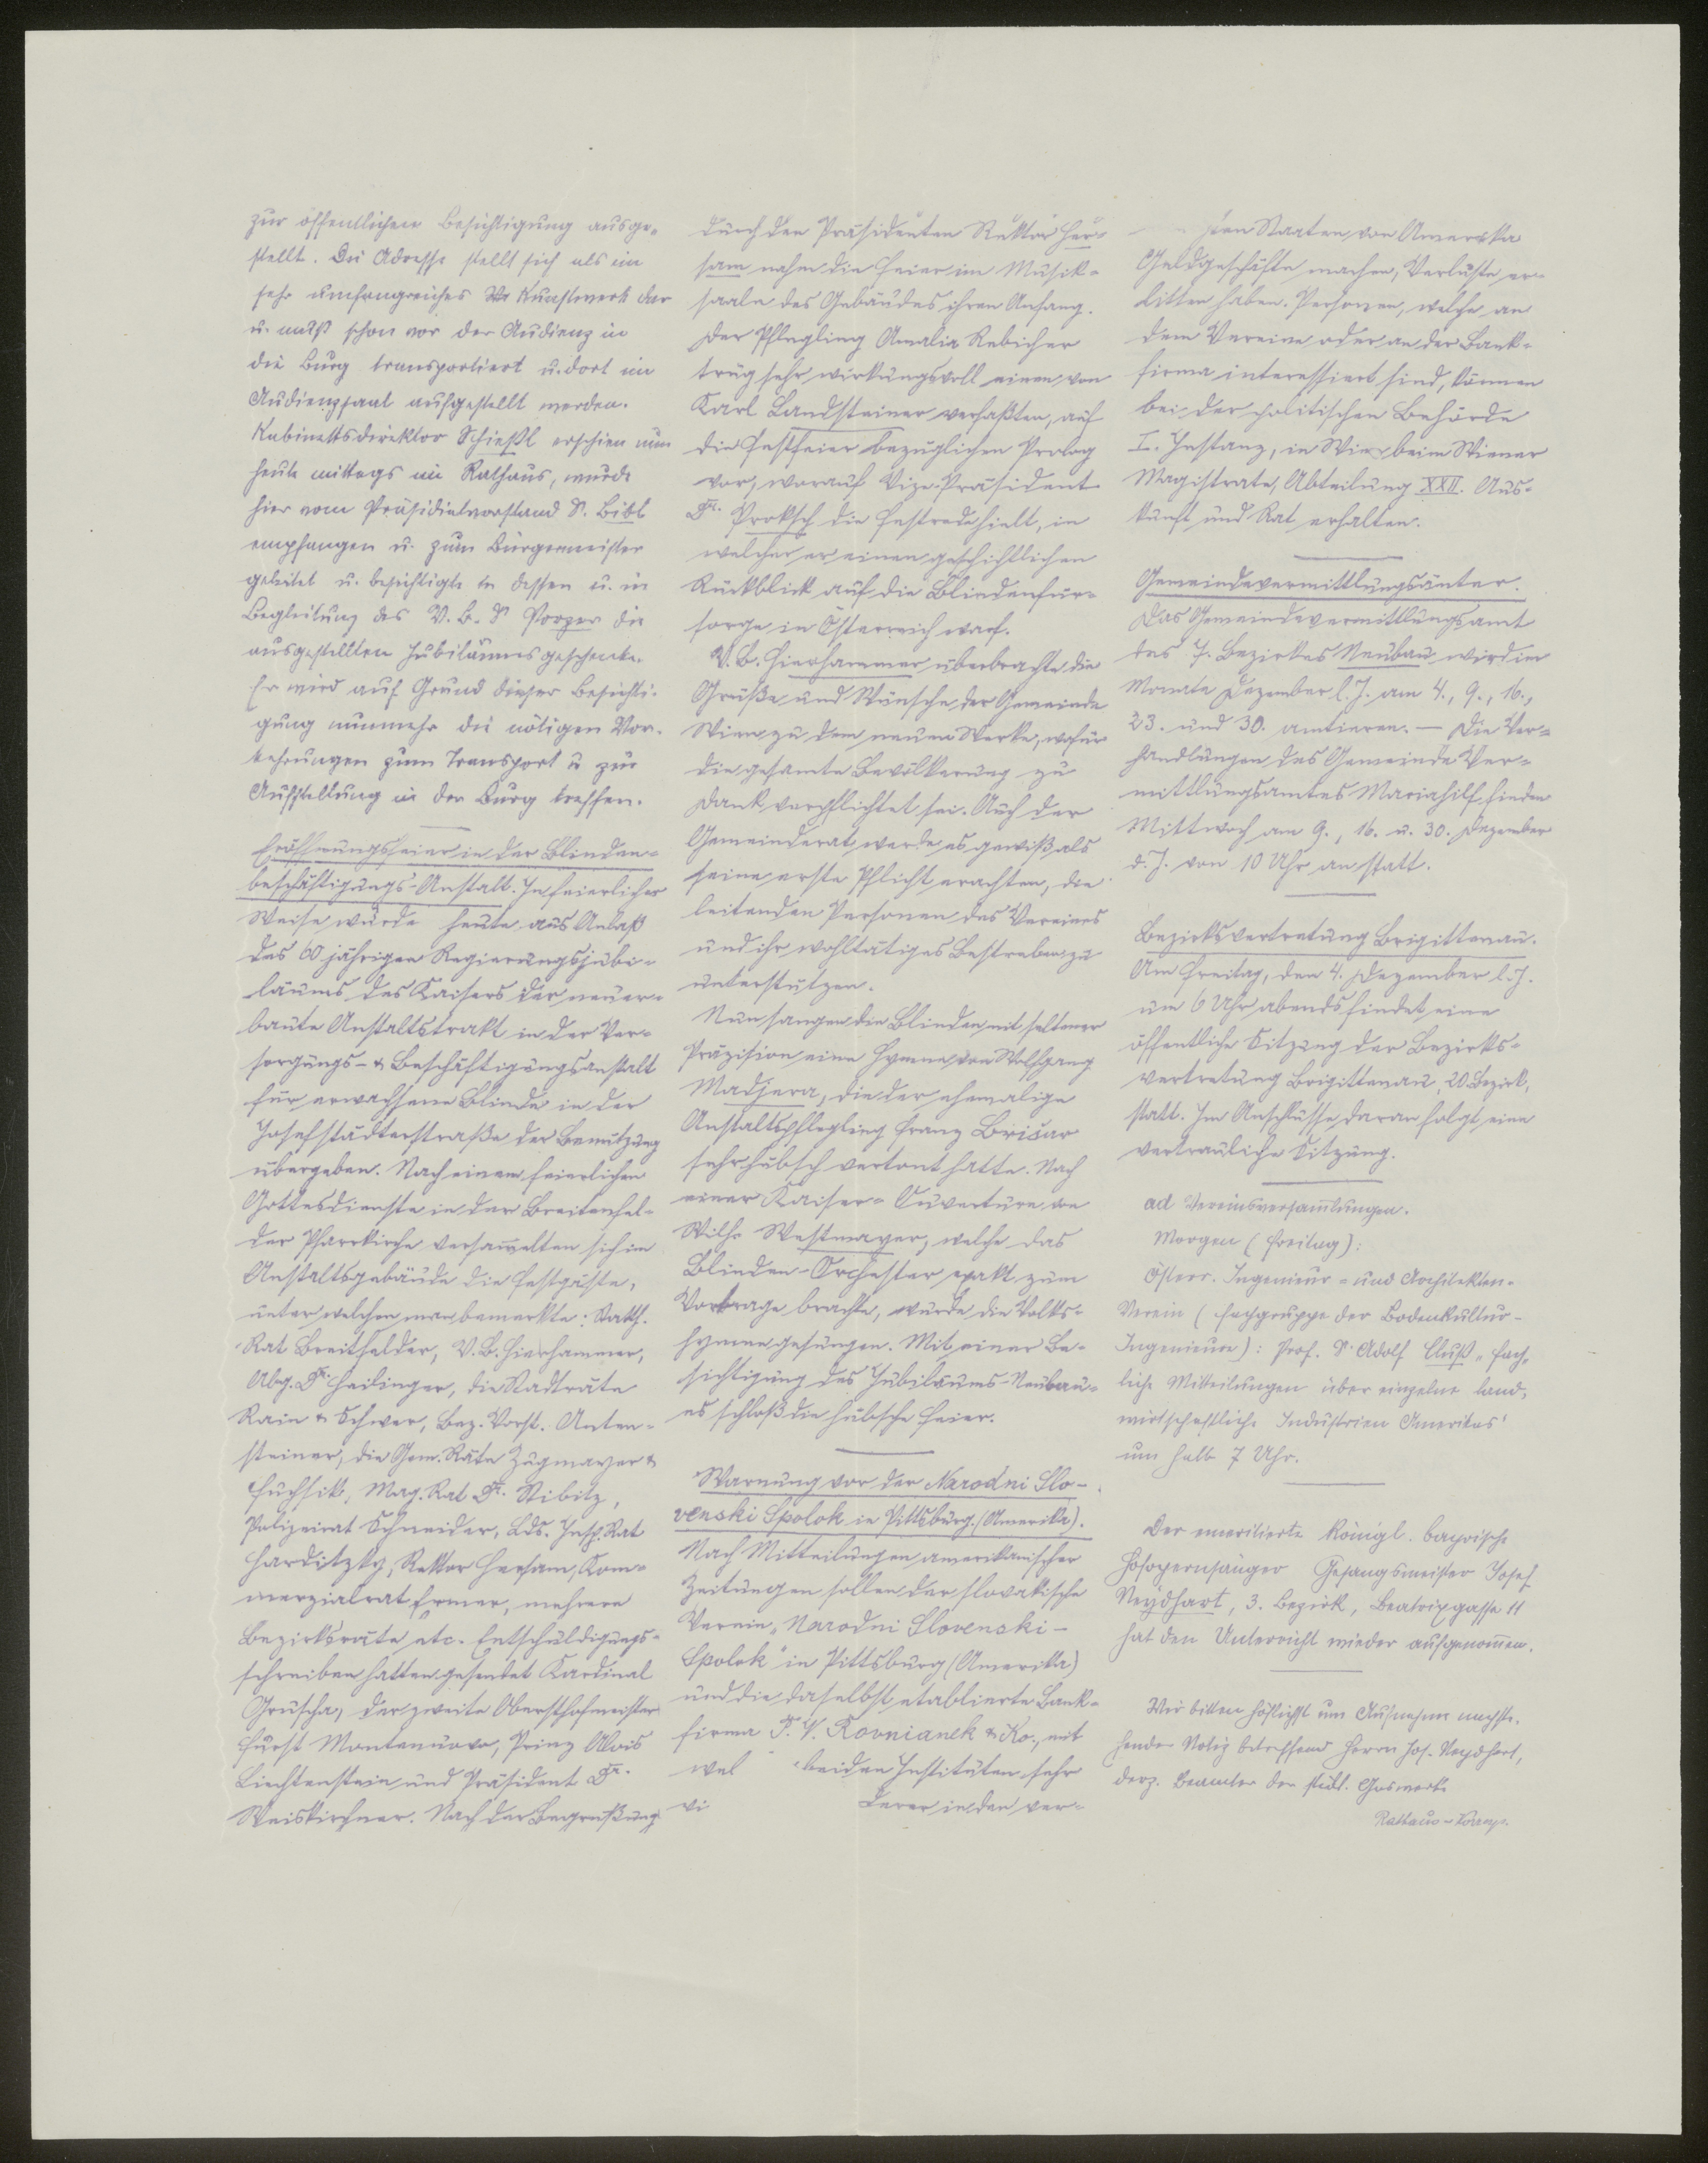 zur öffentlichen Besichtigung ausge-
stellt. Die Adresse stellt sich als ein
sehr umfangreiches Kunstwerk dar
u. muß schon vor der Audienz in
die Burg transportiert u. dort im
Audienzsaal aufgestellt werden.
Kabinettsdirektor Schießl erschien nun
heute mittags im Rathaus, wurde
hier vom Präsidialvorstand Dr. Bibl
empfangen u. zum Bürgermeister
geleitet u. besichtigte in dessen u. in
Begleitung des V.B. Dr. Porzer die
ausgestellten Jubiläumsgeschenke.
Er wird auf Grund dieser Besichti-
gung nunmehr die nötigen Vor-
kehrungen zum Transport u. zur
Aufstellung in der Burg treffen.
Eröffnungsfeier in der Blinden-
beschäftigungs-Anstalt. In feierlicher
Weise wurde heute aus Anlaß
des 60 jährigen Regierungsjubi-
läums des Kaisers der neuer-
baute Anstaltstrakt in der Ver-
sorgungs- & Beschäftigungsanstalt
für erwachsene Blinde in der
Josefstädterstraße der Benützung
übergeben. Nach einem feierlichen
Gottesdienste in der Breitenfel-
der Pfarrkirche versam̅elten sich im
Anstaltsgebäude die Festgäste,
unter welchen man bemerkte: Statth.
Rat Breitfelder, V.B. Hierhammer,
Abg. Dr. Heilinger, die Stadträte
Rain & Schwer, Bez. Vorst. Anten-
steiner, die Gem. Räte Zugmayer &
Fuchsik, Mag. Rat Dr. Stibitz,
Polizeirat Schneider, Lds. Insp. Rat
Harditzky, Rektor Hersam, Kom-
merzialrat Ermer, mehrere
Bezirksräte etc. Entschuldigungs-
schreiben hatten gesendet Kardinal
Gruscha, der zweite Obersthofmeister
Fürst Montenuovo, Prinz Alois
Liechtenstein und Präsident Dr.
Weiskirchner. Nach der Begrüßung
durch den Präsidenten Rektor Her-
sam nahm die Feier im Musik-
saale des Gebäudes ihren Anfang.
Der Pflegling Amalia Rebicher
trug sehr wirkungsvoll einen von
Karl Landsteiner verfaßten, auf
die Festfeier bezüglichen Prolog
vor, worauf Vize-Präsident
Dr. Proksch die Festrede hielt, in
welcher er einen geschichtlichen
Rückblick auf die Blindenfür-
sorge in Österreich warf.
V.B. Hierhammer überbrachte die
Grüße und Wünsche der Gemeinde
Wien zu dem neuen Werke, wofür
die gesamte Bevölkerung zu
Dank verpflichtet sei. Auch der
Gemeinderat werde es gewiß als
seine erste Pflicht erachten, die
leitenden Personen des Vereines
und ihr wohltätiges Bestreben zu
unterstützen.
Nun sangen die Blinden mit seltener
Präzision eine Hymne von Wolfgang
Madjera, die der ehemalige
Anstaltspflegling Franz Brišar
sehr hübsch vertont hatte. Nach
einer Kaiser-Ouverture von
Wilh. Westmayer, welche das
Blinden-Orchester exakt zum
Vortrage brachte, wurde die Volks-
hymne gesungen. Mit einer Be-
sichtigung des Jubiläums-Neubau-
es schloß die hübsche Feier.
Warnung vor der Narodni Slo-
venski Spolok in Pittsburg (Amerika).
Nach Mitteilungen amerikanischer
Zeitungen sollen der slovakische
Verein „Narodni Slovenski-
Spolok" in Pittsburg (Amerika)
und die daselbst etablierte Bank-
firma P. V. Rovnianek & Ko., mit
wel beiden Instituten sehr
vi derer in den ver-
ten Staaten von Amerika
Geldgeschäfte machen, Verluste er-
litten haben. Personen, welche an
dem Vereine oder an der Bank-
firma interessiert sind, können
bei der politischen Behörde
I. Instanz, in Wien beim Wiener
Magistrate, Abteilung XXII. Aus-
kunft und Rat erhalten.
Gemeindevermittlungsämter.
Das Gemeindevermittlungsamt
des 7. Bezirkes Neubau wird im
Monate Dezember l. J. am 4., 9., 16.,
23. und 30. amtieren. — Die Ver-
handlungen des Gemeinde Ver-
mittlungsamtes Mariahilf finden
Mittwoch am 9., 16. u. 30. Dezember
d. J. von 10 Uhr an statt.
Bezirksvertretung Brigittenau.
Am Freitag, den 4. Dezember l. J.
um 6 Uhr abends findet eine
öffentliche Sitzung der Bezirks-
vertretung Brigittenau, 20. Bezirk,
statt. Im Anschlusse daran folgt eine
vertrauliche Sitzung.
ad Vereinsversam̅lungen.
Morgen (Freitag):
Österr. Ingenieur- und Architekten-
Verein (Fachgruppe der Bodenkultur-
Ingenieure): Prof. Dr. Adolf Cluß „Fach-
liche Mitteilungen über einzelne land-
wirtschaftliche Industrien Amerikas"
um halb 7 Uhr.
Der emeritierte königl. bayrische
Hofopernsänger Gesangsmeister Josef
Neydhart, 3. Bezirk, Beatrixgasse 11
hat den Unterricht wieder aufgenom̅en.
Wir bitten höflichst um Aufnahme nachste-
hender Notiz betreffend Herrn Jos. Neydhart,
derz. Beamter der städt. Gaswerke
Rathaus-Korresp.